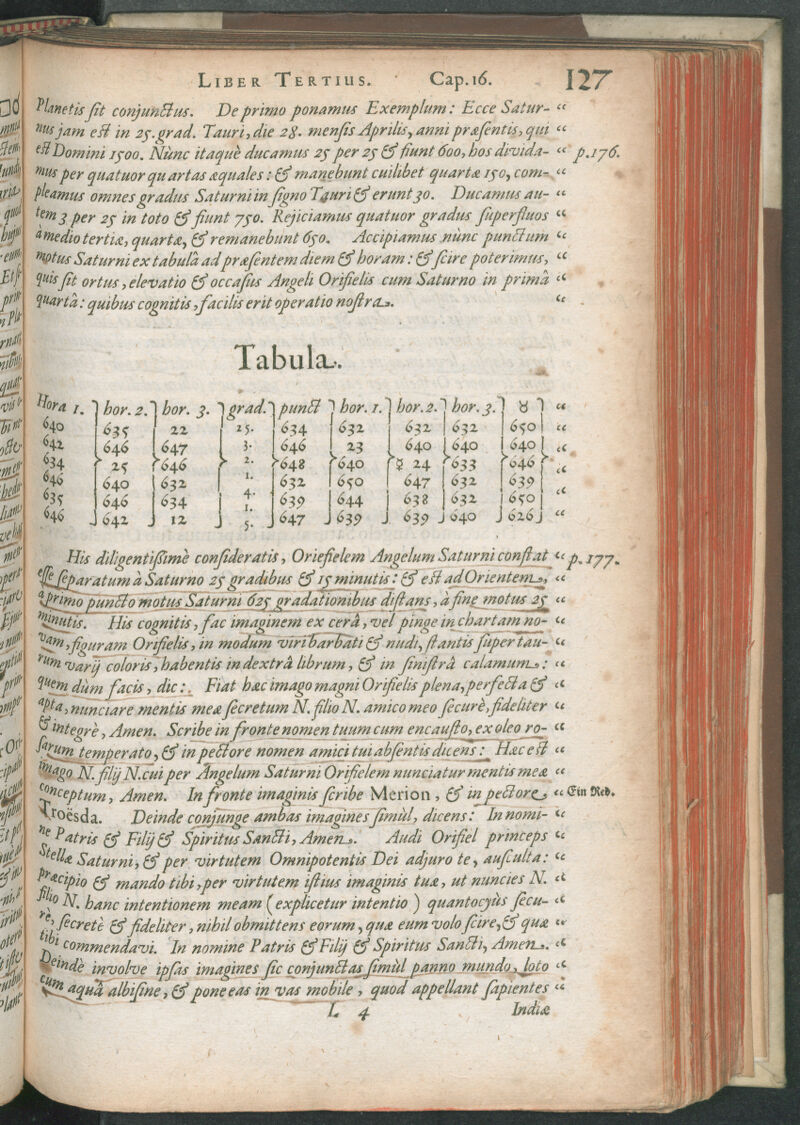 LIBER TERTIUS. Cap.16. 127
Planetis sit conjunctus. De primo ponamus Exemplum: Ecce Satur- “
nus jam est in 25. grad. Tauri, die 28. mensis Aprilis, anni præsentis, qui “
est Domini 1500. Nunc itaquè ducamus 25 per 25 & fiunt 600, hos divida- “ p.176.
mus per quatuor quartas æquales: & manebunt cuilibet quartæ 150, com- “
pleamus omnes gradus Saturni in signo Tauri & erunt 30. Ducamus au- “
tem 3 per 25 in toto & fiunt 750. Rejiciamus quatuor gradus superfluos “
à medio tertiæ, quartæ, & remanebunt 650. Accipiamus nunc punctum “
motus Saturni ex tabulâ ad præsentem diem & horam: & scire poterimus, “
quis sit ortus, elevatio & occasus Angeli Orifielis cum Saturno in primâ “
quartâ: quibus cognitis, facilis erit operatio nostra. “
Tabula.
Hora 1. hor. 2. hor. 3. grad. punct hor. 1. hor. 2. hor. 3. ♉ “
640 635 22 25. 634 632 632 632 650 “
642 646 647 3. 646 23 640 640 640 “
634 25 646 2. 648 640 ☿ 24 633 646 “
646 640 632 1. 632 650 647 632 639
635 646 634 4. 1. 639 644 638 632 650 “
646 642 12 5. 647 639 639 640 626 “
His diligentissimè consideratis, Oriefielem Angelum Saturni constat “ p. 177.
esse separatum à Saturno 25 gradibus & 15 minutis: & est ad Orientem, “
à primo puncto motus Saturni 625 gradationibus distans, à fine motus 25 “
minutis. His cognitis, fac imaginem ex cerâ, vel pinge in chartam no- “
vam, figuram Orifielis, in modum viri barbati & nudi, stantis super tau- “
rum varij coloris, habentis in dextrâ librum, & in sinistrâ calamum: “
quem dùm facis, dic: Fiat hæc imago magni Orifielis plena, perfecta & “
apta, nunciare mentis meæ secretum N. filio N. amico meo securè, fideliter “
& integrè, Amen. Scribe in fronte nomen tuum cum encausto, ex oleo ro- “
sarum temperato, & in pectore nomen amici tui absentis dicens: Hæc est “
imago N. filij N. cui per Angelum Saturni Orifielem nunciatur mentis meæ “
conceptum, Amen. In fronte imaginis scribe Merion, & in pectore “ Ein Red.
Troësda. Deinde conjunge ambas imagines simùl, dicens: In nomi- “
ne Patris & Filij & Spiritus Sancti, Amen. Audi Orifiel princeps “
Stellæ Saturni, & per virtutem Omnipotentis Dei adjuro te, ausculta: “
Præcipio & mando tibi, per virtutem istius imaginis tuæ, ut nuncies N. “
filio N. hanc intentionem meam (explicetur intentio) quantocyùs secu- “
rè, secretè & fideliter, nihil obmittens eorum, quæ eum volo scire, & quæ “
tibi commendavi. In nomine Patris & Filij & Spiritus Sancti, Amen. “
Deindè involve ipsas imagines sic conjunctas simùl panno mundo, loto “
cum aquâ albisine, & pone eas in vas mobile, quod appellant sapientes “
L 4 Indiæ